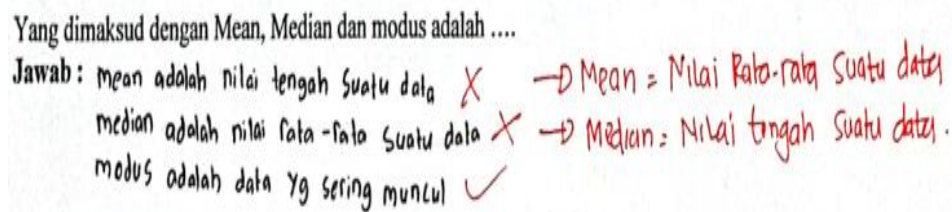 Yang dimaksud dengan Mean, Median dan modus adalah ....
Jawab : mean adalah nilai tengah suatu data X → Mean = Nilai Rata-rata suatu data
median adalah nilai rata-rata suatu data X → Median = Nilai tengah suatu data
modus adalah data yg sering muncul ✓